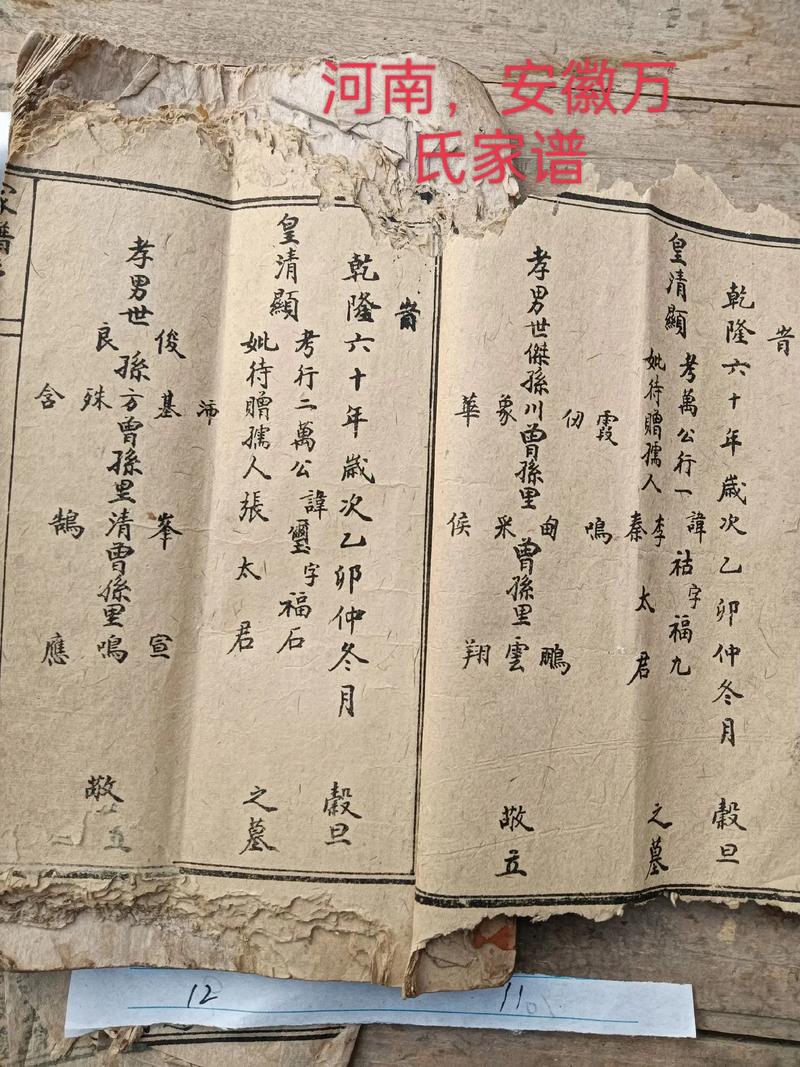 河南，安徽万
氏家谱
旹
乾隆六十年歲次乙卯仲冬月穀旦
皇清顯
考萬公行一諱祜字福九
妣待贈孺人李秦太君
之墓
霞鳴
仞甸鵬
孝男世傑孫川曾孫里曾孫里敬立
象采雲
華侯翔
旹
乾隆六十年歲次乙卯仲冬月穀旦
皇清顯
考行二萬公諱璽字福石
妣待贈孺人張太君
之墓
沛
俊基峯宣
孝男世孫方曾孫里清曾孫里敬立
良殊鳴
含鵠應
家譜
12
11